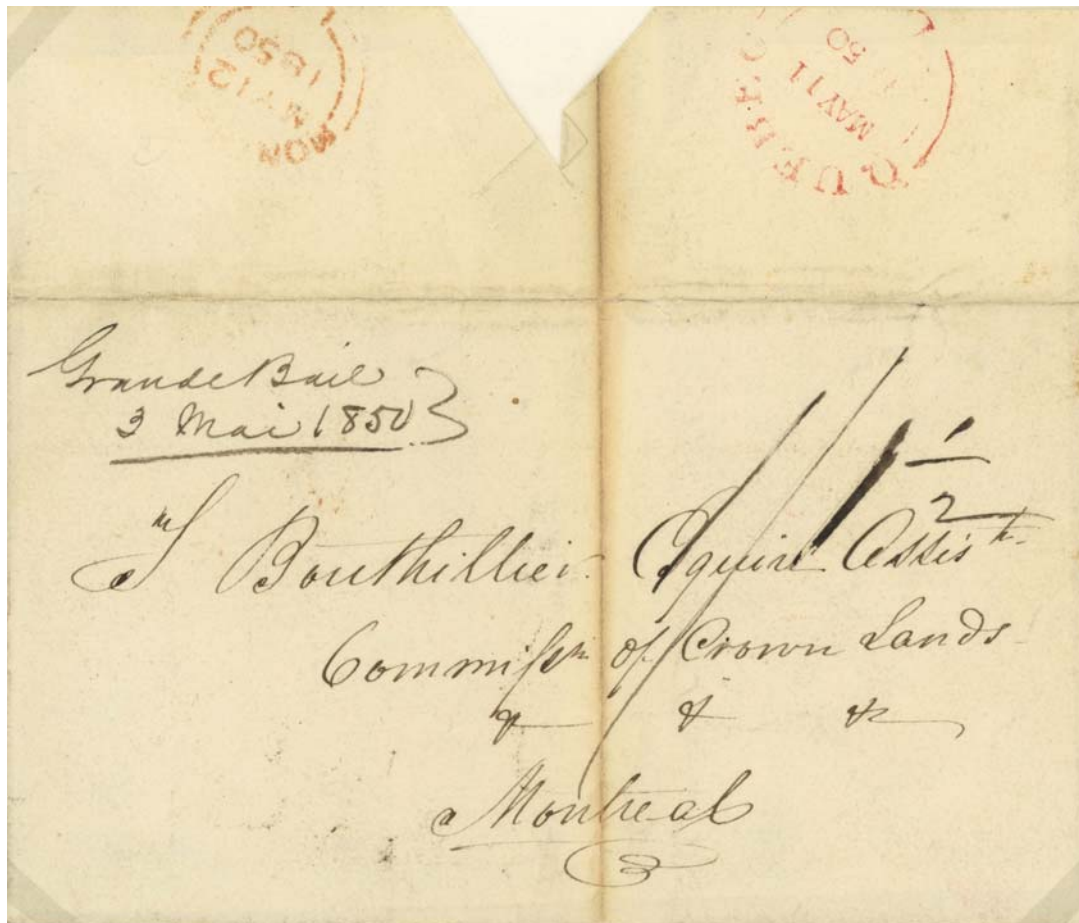 MON
MY 12
1850
QUEBEC
MAY 11
50
Grande Baie
3 Mai 1850
T Bouthillier Esquire Assist
Commissr of Crown Lands
& & &
Montreal